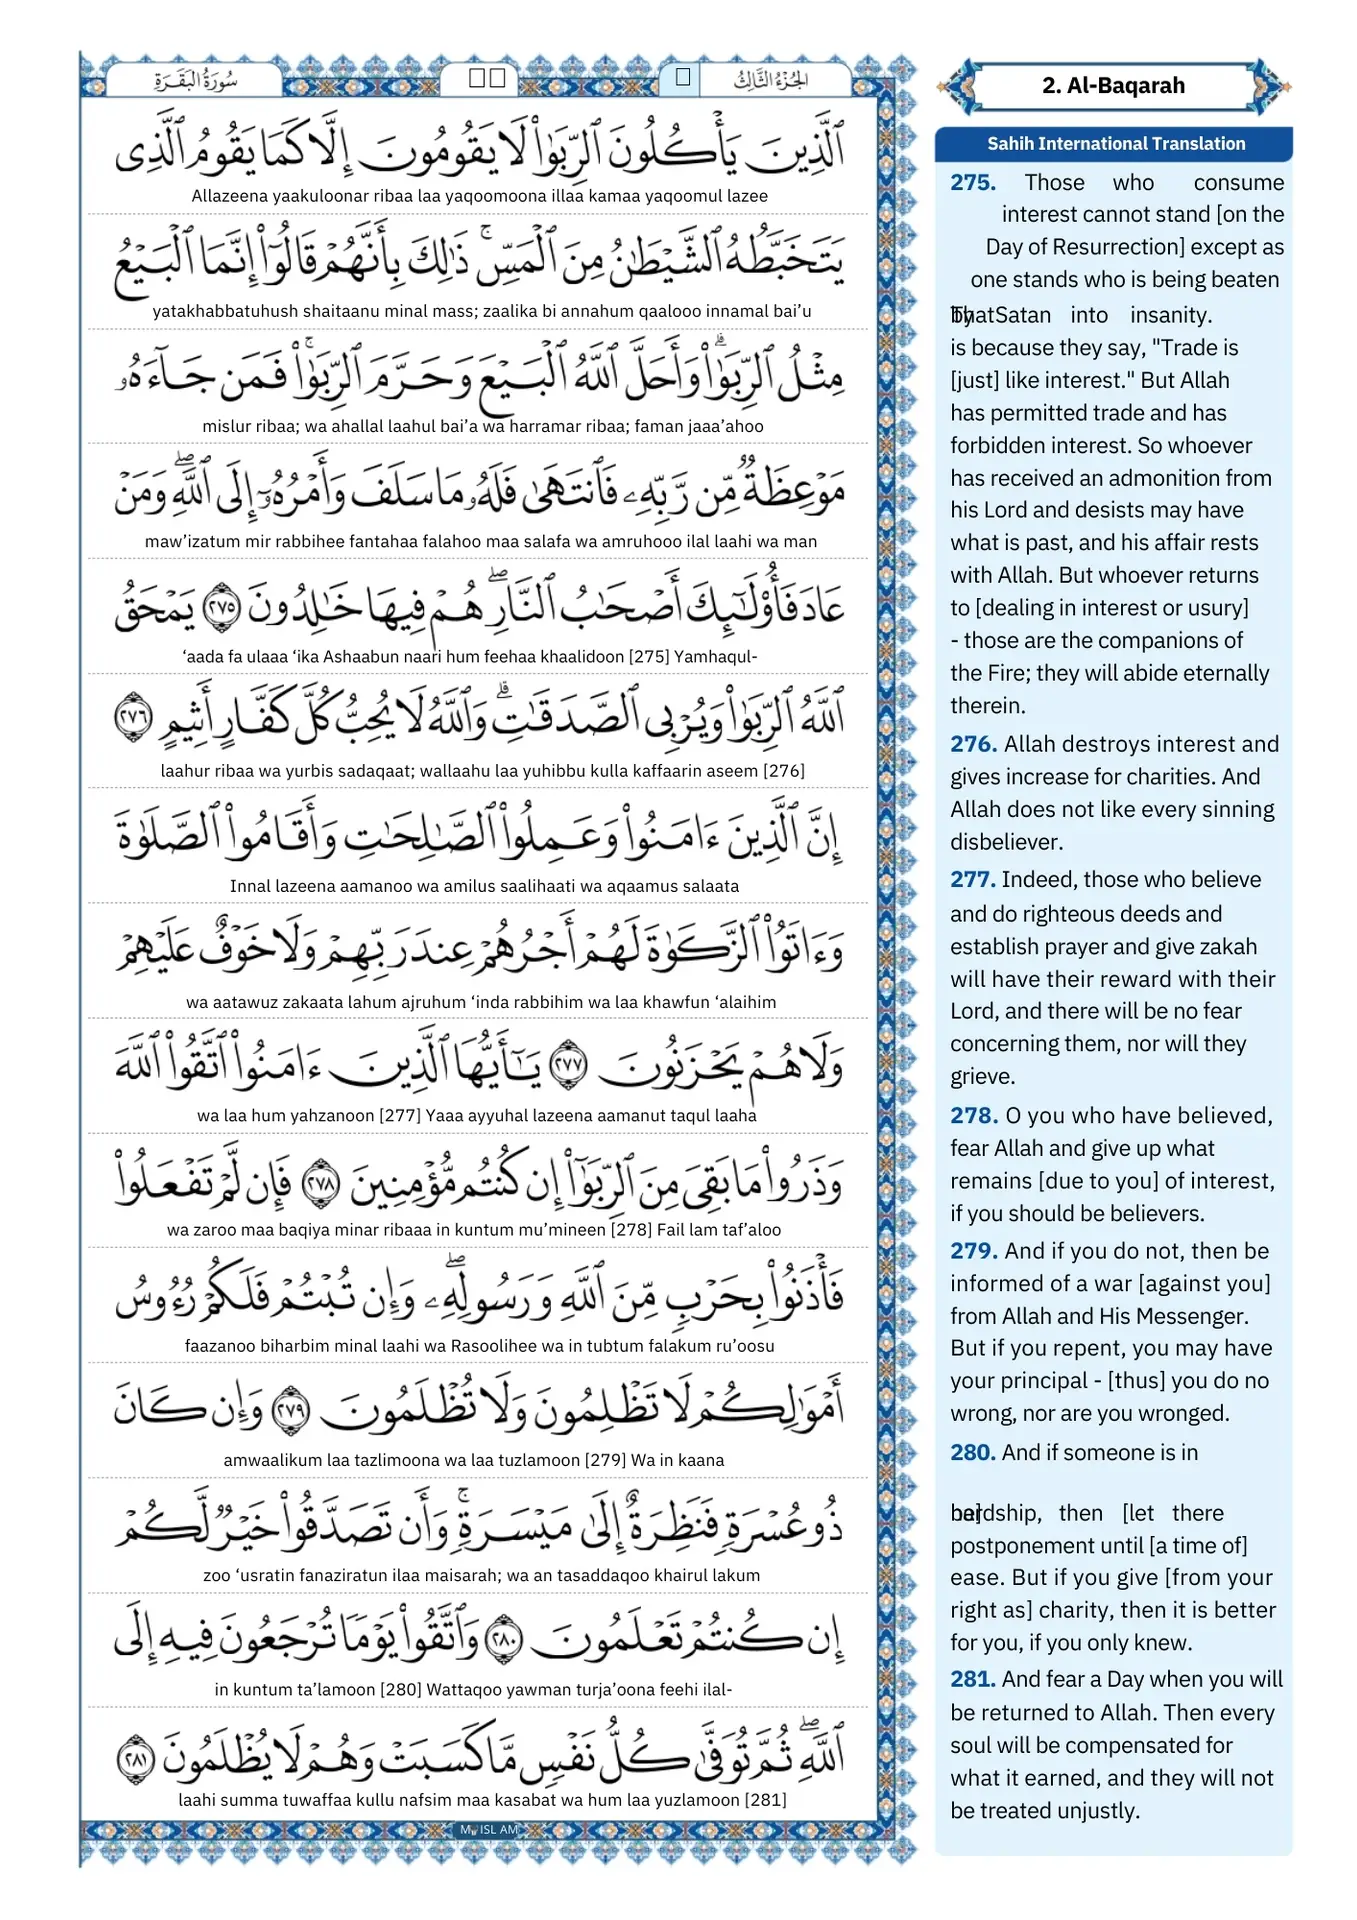 سُورَةُ البَقَرَةِ
الجُزْءُ الثَّالِثُ
ٱلَّذِينَ يَأْكُلُونَ ٱلرِّبَوٰا۟ لَا يَقُومُونَ إِلَّا كَمَا يَقُومُ ٱلَّذِى
Allazeena yaakuloonar ribaa laa yaqoomoona illaa kamaa yaqoomul lazee
يَتَخَبَّطُهُ ٱلشَّيْطَـٰنُ مِنَ ٱلْمَسِّ ۚ ذَٰلِكَ بِأَنَّهُمْ قَالُوٓا۟ إِنَّمَا ٱلْبَيْعُ
yatakhabbatuhush shaitaanu minal mass; zaalika bi annahum qaalooo innamal bai’u
مِثْلُ ٱلرِّبَوٰا۟ ۗ وَأَحَلَّ ٱللَّهُ ٱلْبَيْعَ وَحَرَّمَ ٱلرِّبَوٰا۟ ۚ فَمَن جَآءَهُۥ
mislur ribaa; wa ahallal laahul bai’a wa harramar ribaa; faman jaaa’ahoo
مَوْعِظَةٌ مِّن رَّبِّهِۦ فَٱنتَهَىٰ فَلَهُۥ مَا سَلَفَ وَأَمْرُهُۥٓ إِلَى ٱللَّهِ ۖ وَمَنْ
maw’izatum mir rabbihee fantahaa falahoo maa salafa wa amruhooo ilal laahi wa man
عَادَ فَأُو۟لَـٰٓئِكَ أَصْحَـٰبُ ٱلنَّارِ ۖ هُمْ فِيهَا خَـٰلِدُونَ ٢٧٥ يَمْحَقُ
‘aada fa ulaaa ‘ika Ashaabun naari hum feehaa khaalidoon [275] Yamhaqul-
ٱللَّهُ ٱلرِّبَوٰا۟ وَيُرْبِى ٱلصَّدَقَـٰتِ ۗ وَٱللَّهُ لَا يُحِبُّ كُلَّ كَفَّارٍ أَثِيمٍ ٢٧٦
laahur ribaa wa yurbis sadaqaat; wallaahu laa yuhibbu kulla kaffaarin aseem [276]
إِنَّ ٱلَّذِينَ ءَامَنُوا۟ وَعَمِلُوا۟ ٱلصَّـٰلِحَـٰتِ وَأَقَامُوا۟ ٱلصَّلَوٰةَ
Innal lazeena aamanoo wa amilus saalihaati wa aqaamus salaata
وَءَاتَوُا۟ ٱلزَّكَوٰةَ لَهُمْ أَجْرُهُمْ عِندَ رَبِّهِمْ وَلَا خَوْفٌ عَلَيْهِمْ
wa aatawuz zakaata lahum ajruhum ‘inda rabbihim wa laa khawfun ‘alaihim
وَلَا هُمْ يَحْزَنُونَ ٢٧٧ يَـٰٓأَيُّهَا ٱلَّذِينَ ءَامَنُوا۟ ٱتَّقُوا۟ ٱللَّهَ
wa laa hum yahzanoon [277] Yaaa ayyuhal lazeena aamanut taqul laaha
وَذَرُوا۟ مَا بَقِىَ مِنَ ٱلرِّبَوٰٓا۟ إِن كُنتُم مُّؤْمِنِينَ ٢٧٨ فَإِن لَّمْ تَفْعَلُوا۟
wa zaroo maa baqiya minar ribaaa in kuntum mu’mineen [278] Fail lam taf’aloo
فَأْذَنُوا۟ بِحَرْبٍ مِّنَ ٱللَّهِ وَرَسُولِهِۦ ۖ وَإِن تُبْتُمْ فَلَكُمْ رُءُوسُ
faazanoo biharbim minal laahi wa Rasoolihee wa in tubtum falakum ru’oosu
أَمْوَٰلِكُمْ لَا تَظْلِمُونَ وَلَا تُظْلَمُونَ ٢٧٩ وَإِن كَانَ
amwaalikum laa tazlimoona wa laa tuzlamoon [279] Wa in kaana
ذُو عُسْرَةٍ فَنَظِرَةٌ إِلَىٰ مَيْسَرَةٍ ۚ وَأَن تَصَدَّقُوا۟ خَيْرٌ لَّكُمْ
zoo ‘usratin fanaziratun ilaa maisarah; wa an tasaddaqoo khairul lakum
إِن كُنتُمْ تَعْلَمُونَ ٢٨٠ وَٱتَّقُوا۟ يَوْمًا تُرْجَعُونَ فِيهِ إِلَى
in kuntum ta’lamoon [280] Wattaqoo yawman turja’oona feehi ilal-
ٱللَّهِ ۖ ثُمَّ تُوَفَّىٰ كُلُّ نَفْسٍ مَّا كَسَبَتْ وَهُمْ لَا يُظْلَمُونَ ٢٨١
laahi summa tuwaffaa kullu nafsim maa kasabat wa hum laa yuzlamoon [281]
My ISLAM
2. Al-Baqarah
Sahih International Translation
275. Those who consume
interest cannot stand [on the
Day of Resurrection] except as
one stands who is being beaten
by Satan into insanity. That
is because they say, "Trade is
[just] like interest." But Allah
has permitted trade and has
forbidden interest. So whoever
has received an admonition from
his Lord and desists may have
what is past, and his affair rests
with Allah. But whoever returns
to [dealing in interest or usury]
- those are the companions of
the Fire; they will abide eternally
therein.
276. Allah destroys interest and
gives increase for charities. And
Allah does not like every sinning
disbeliever.
277. Indeed, those who believe
and do righteous deeds and
establish prayer and give zakah
will have their reward with their
Lord, and there will be no fear
concerning them, nor will they
grieve.
278. O you who have believed,
fear Allah and give up what
remains [due to you] of interest,
if you should be believers.
279. And if you do not, then be
informed of a war [against you]
from Allah and His Messenger.
But if you repent, you may have
your principal - [thus] you do no
wrong, nor are you wronged.
280. And if someone is in
hardship, then [let there be]
postponement until [a time of]
ease. But if you give [from your
right as] charity, then it is better
for you, if you only knew.
281. And fear a Day when you will
be returned to Allah. Then every
soul will be compensated for
what it earned, and they will not
be treated unjustly.